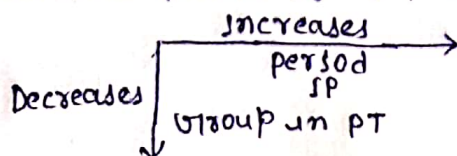 Increases
Period
IP
Decreases
Group in PT